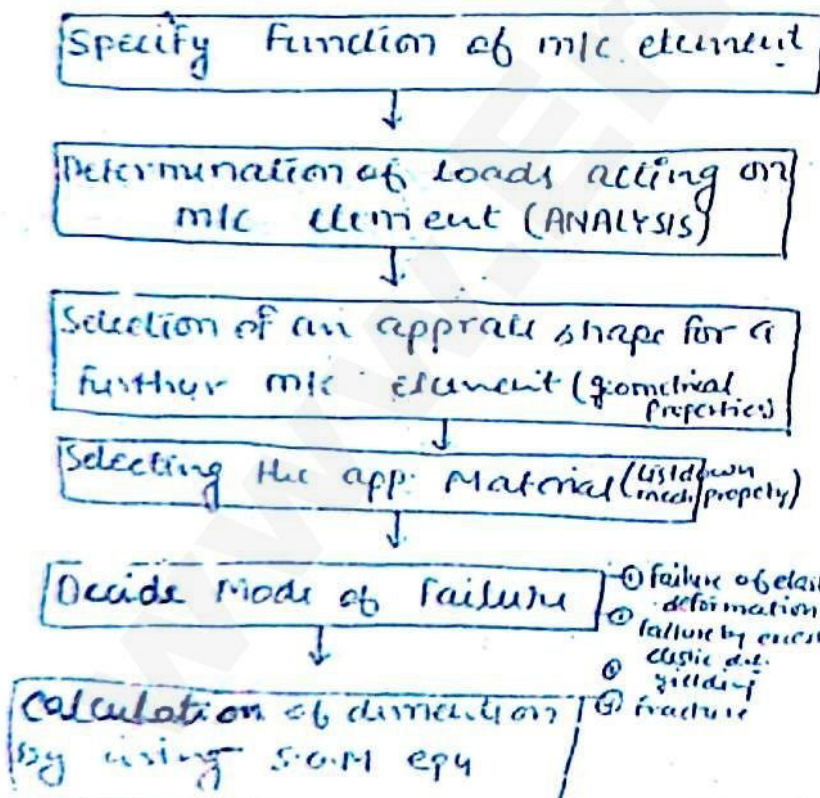 Specify Function of m/c. element
Determination of Loads acting on
m/c element (ANALYSIS)
Selection of an apprate shape for a
further m/c element (geometrical
properties)
Selecting the app. Material (Listdown
mech property)
Decide Mode of Failure
① failure of elast
deformation
failure by
elastic def.
yielding
fracture
Calculation of dimention
By using S.O.M eqn